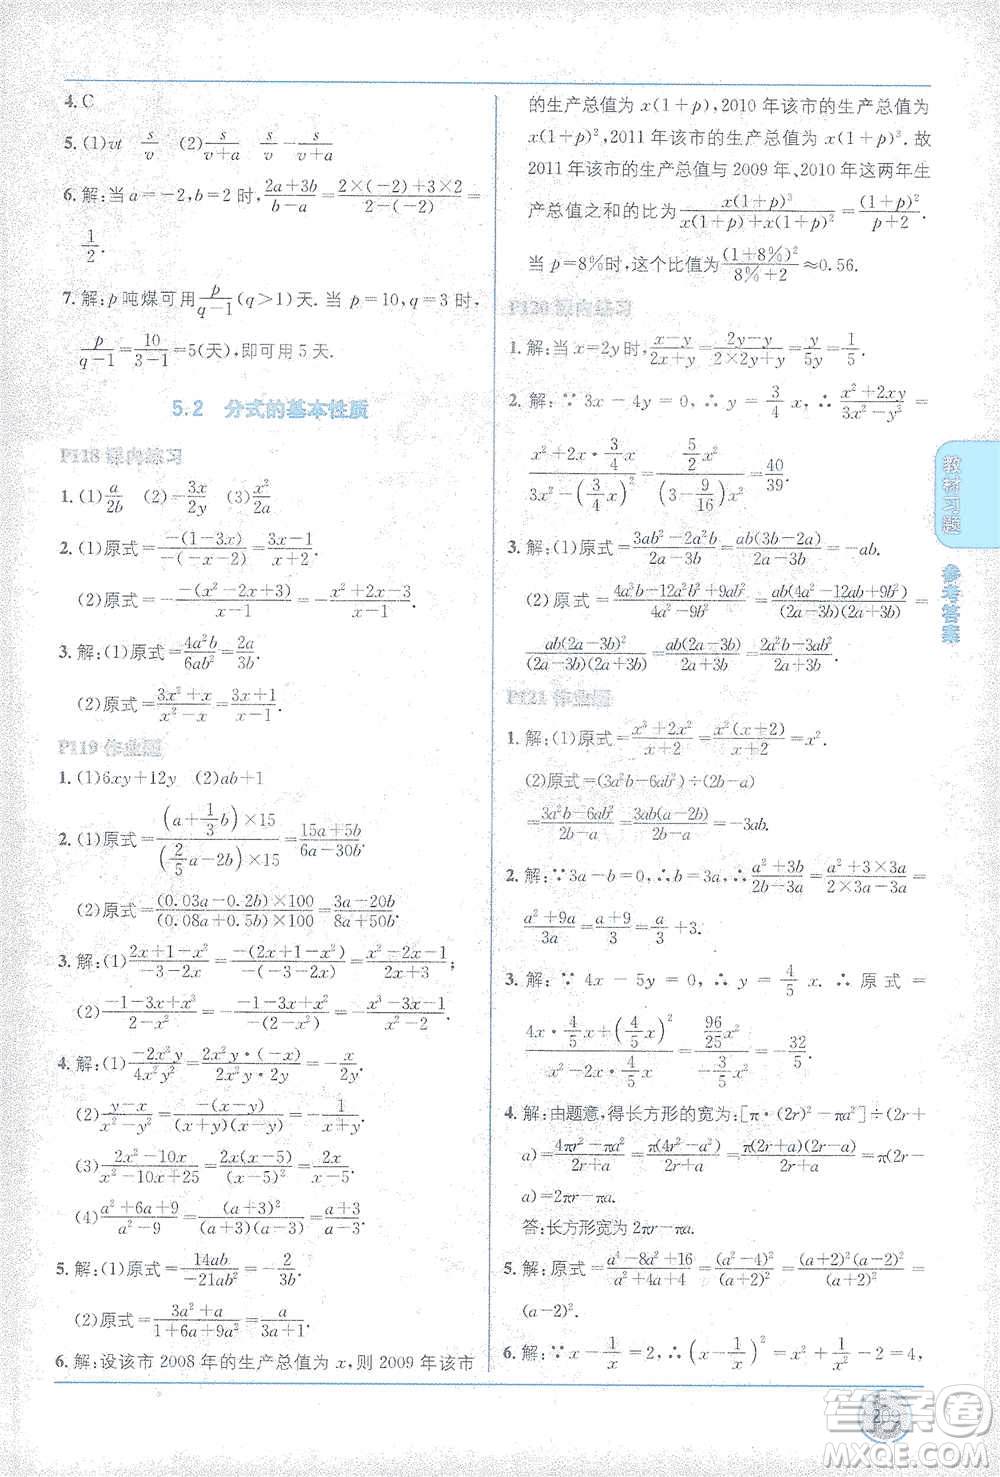 4. C
5. (1)vt  s/v  (2) s/(v+a)  s/v − s/(v+a)
6. 解:当 a=−2,b=2 时, (2a+3b)/(b−a) = (2×(−2)+3×2)/(2−(−2)) =
1/2.
7. 解:p 吨煤可用 p/(q−1) (q>1)天. 当 p=10,q=3 时,
p/(q−1) = 10/(3−1) =5(天),即可用 5 天.
5.2 分式的基本性质
P118 课内练习
1. (1) a/2b  (2) −3x/2y  (3) x²/2a
2. (1)原式= −(1−3x)/−(−x−2) = (3x−1)/(x+2).
3. 解:(1)原式= 4a²b/6ab² = 2a/3b.
(2)原式= (3x²+x)/(x²−x) = (3x+1)/(x−1).
P119 作业题
1. (1)6xy+12y  (2)ab+1
2. (1)原式= ((a+1/3 b)×15)/((2/5 a−2b)×15) = (15a+5b)/(6a−30b).
(2)原式= ((0.03a−0.2b)×100)/((0.08a+0.5b)×100) = (3a−20b)/(8a+50b).
4. 解:(1) −2x²y/4x²y² …
(2) (y−x)/(x²−y²) …
(3) (2x²−10x)/(x²−10x+25) = 2x(x−5)/(x−5)² = 2x/(x−5).
(4) (a²+6a+9)/(a²−9) = (a+3)²/((a+3)(a−3)) = (a+3)/(a−3).
5. 解:(1)原式= 14ab/−21ab² = −2/3b.
(2)原式= (3a²+a)/(1+6a+9a²) = a/(1+3a).
6. 解:设该市 2008 年的生产总值为 x,则 2009 年该市
的生产总值为 x(1+p),2010 年该市的生产总值为
x(1+p)²,2011 年该市的生产总值为 x(1+p)³. 故
2011 年该市的生产总值与 2009 年、2010 年这两年生
产总值之和的比为 x(1+p)³/(x(1+p)+x(1+p)²) = (1+p)²/(p+2).
当 p=8%时,这个比值为 (1+8%)²/(8%+2) ≈0.56.
P120 课内练习
1. 解:当 x=2y 时, (x−y)/(2x+y) = (2y−y)/(2×2y+y) = y/5y = 1/5.
2. 解:∵3x−4y=0,∴y= 3/4 x,∴ (x²+2xy)/(3x²−y²) =
(x²+2x·3/4 x)/(3x²−(3/4 x)²) = (5/2 x²)/((3−9/16)x²) = 40/39.
3. 解:(1)原式= (3ab²−2a²b)/(2a−3b) = ab(3b−2a)/(2a−3b) =−ab.
(2)原式= (4a³b−12a²b²+9ab³)/(4a²−9b²) = ab(4a²−12ab+9b²)/((2a−3b)(2a+3b)) =
ab(2a−3b)²/((2a−3b)(2a+3b)) = ab(2a−3b)/(2a+3b).
P121 作业题
1. 解:(1)原式= (x³+2x²)/(x+2) = x²(x+2)/(x+2) =x².
(2)原式=(3a²b−6ab²)÷(2b−a)
= (3a²b−6ab²)/(2b−a) = 3ab(a−2b)/(2b−a) =−3ab.
2. 解:∵3a−b=0,∴b=3a,∴ (a²+3b)/(2b−3a) = (a²+3×3a)/(2×3a−3a) =
(a²+9a)/3a = (a+9)/3.
3. 解:∵4x−5y=0,∴y= 4/5 x. ∴原式=
(4x·4/5 x+(4/5 x)²)/… = (96/25 x²)/(−3/5 x²) =− 32/5.
4. 解:由题意,得长方形的宽为:[π·(2r)²−πa²]÷(2r+
a)= (4πr²−πa²)/(2r+a) = π(4r²−a²)/(2r+a) = π(2r+a)(2r−a)/(2r+a) =π(2r−
a)=2πr−πa.
答:长方形宽为 2πr−πa.
5. 解:原式= (a⁴−8a²+16)/(a²+4a+4) = (a²−4)²/(a+2)² = (a+2)²(a−2)²/(a+2)² =
(a−2)².
6. 解:∵x− 1/x =2,∴(x−1/x)²=x²+1/x²−2=4,
教材习题
参考答案
209
答案圈
MXQE.COM